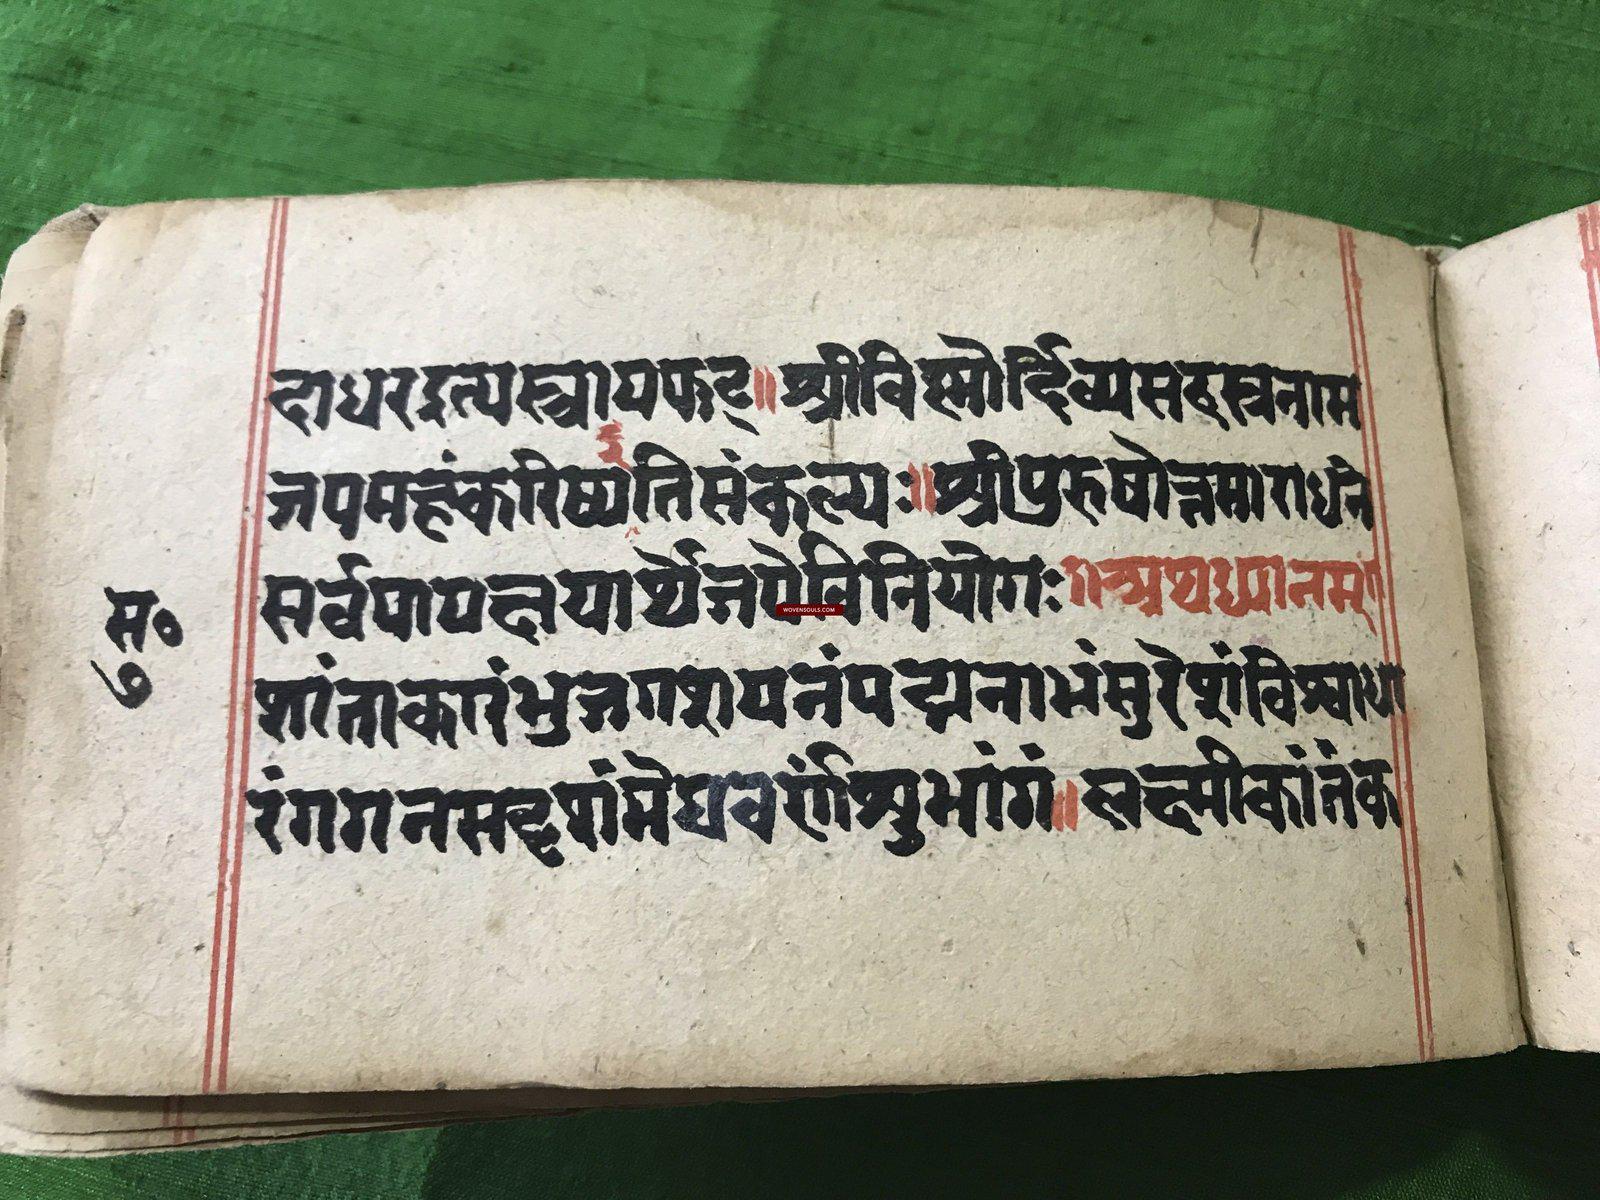 दाधरइत्यस्त्रायफट्॥श्रीविष्मोर्दिव्यसहस्त्रनाम
जपमहंकरिष्यइतिसंकल्पः॥श्रीपुरुषोत्तमाराधने
सर्वपापक्षयार्थेजपेविनियोगः॥अथध्यानम्॥
शांताकारंभुजगशयनंपद्मनाभंसुरैशंविश्वाधा
रंगगनसदृशंमेघवर्णंशुभांगं॥लक्ष्मीकांतंक
स॰
७
WOVENSOULS.COM